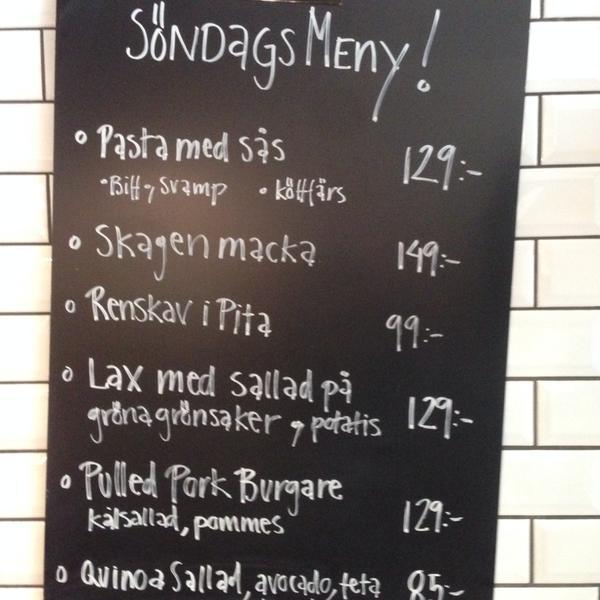 SÖNDAGS MENY!
Pasta med sås 129:-
• Biff, Svamp • köttfärs
Skagen macka 149:-
Renskav i Pita 99:-
Lax med sallad på
gröna grönsaker, potatis 129:-
Pulled Pork Burgare
kålsallad, pommes 129:-
Quinoa Sallad, avocado, feta 85:-